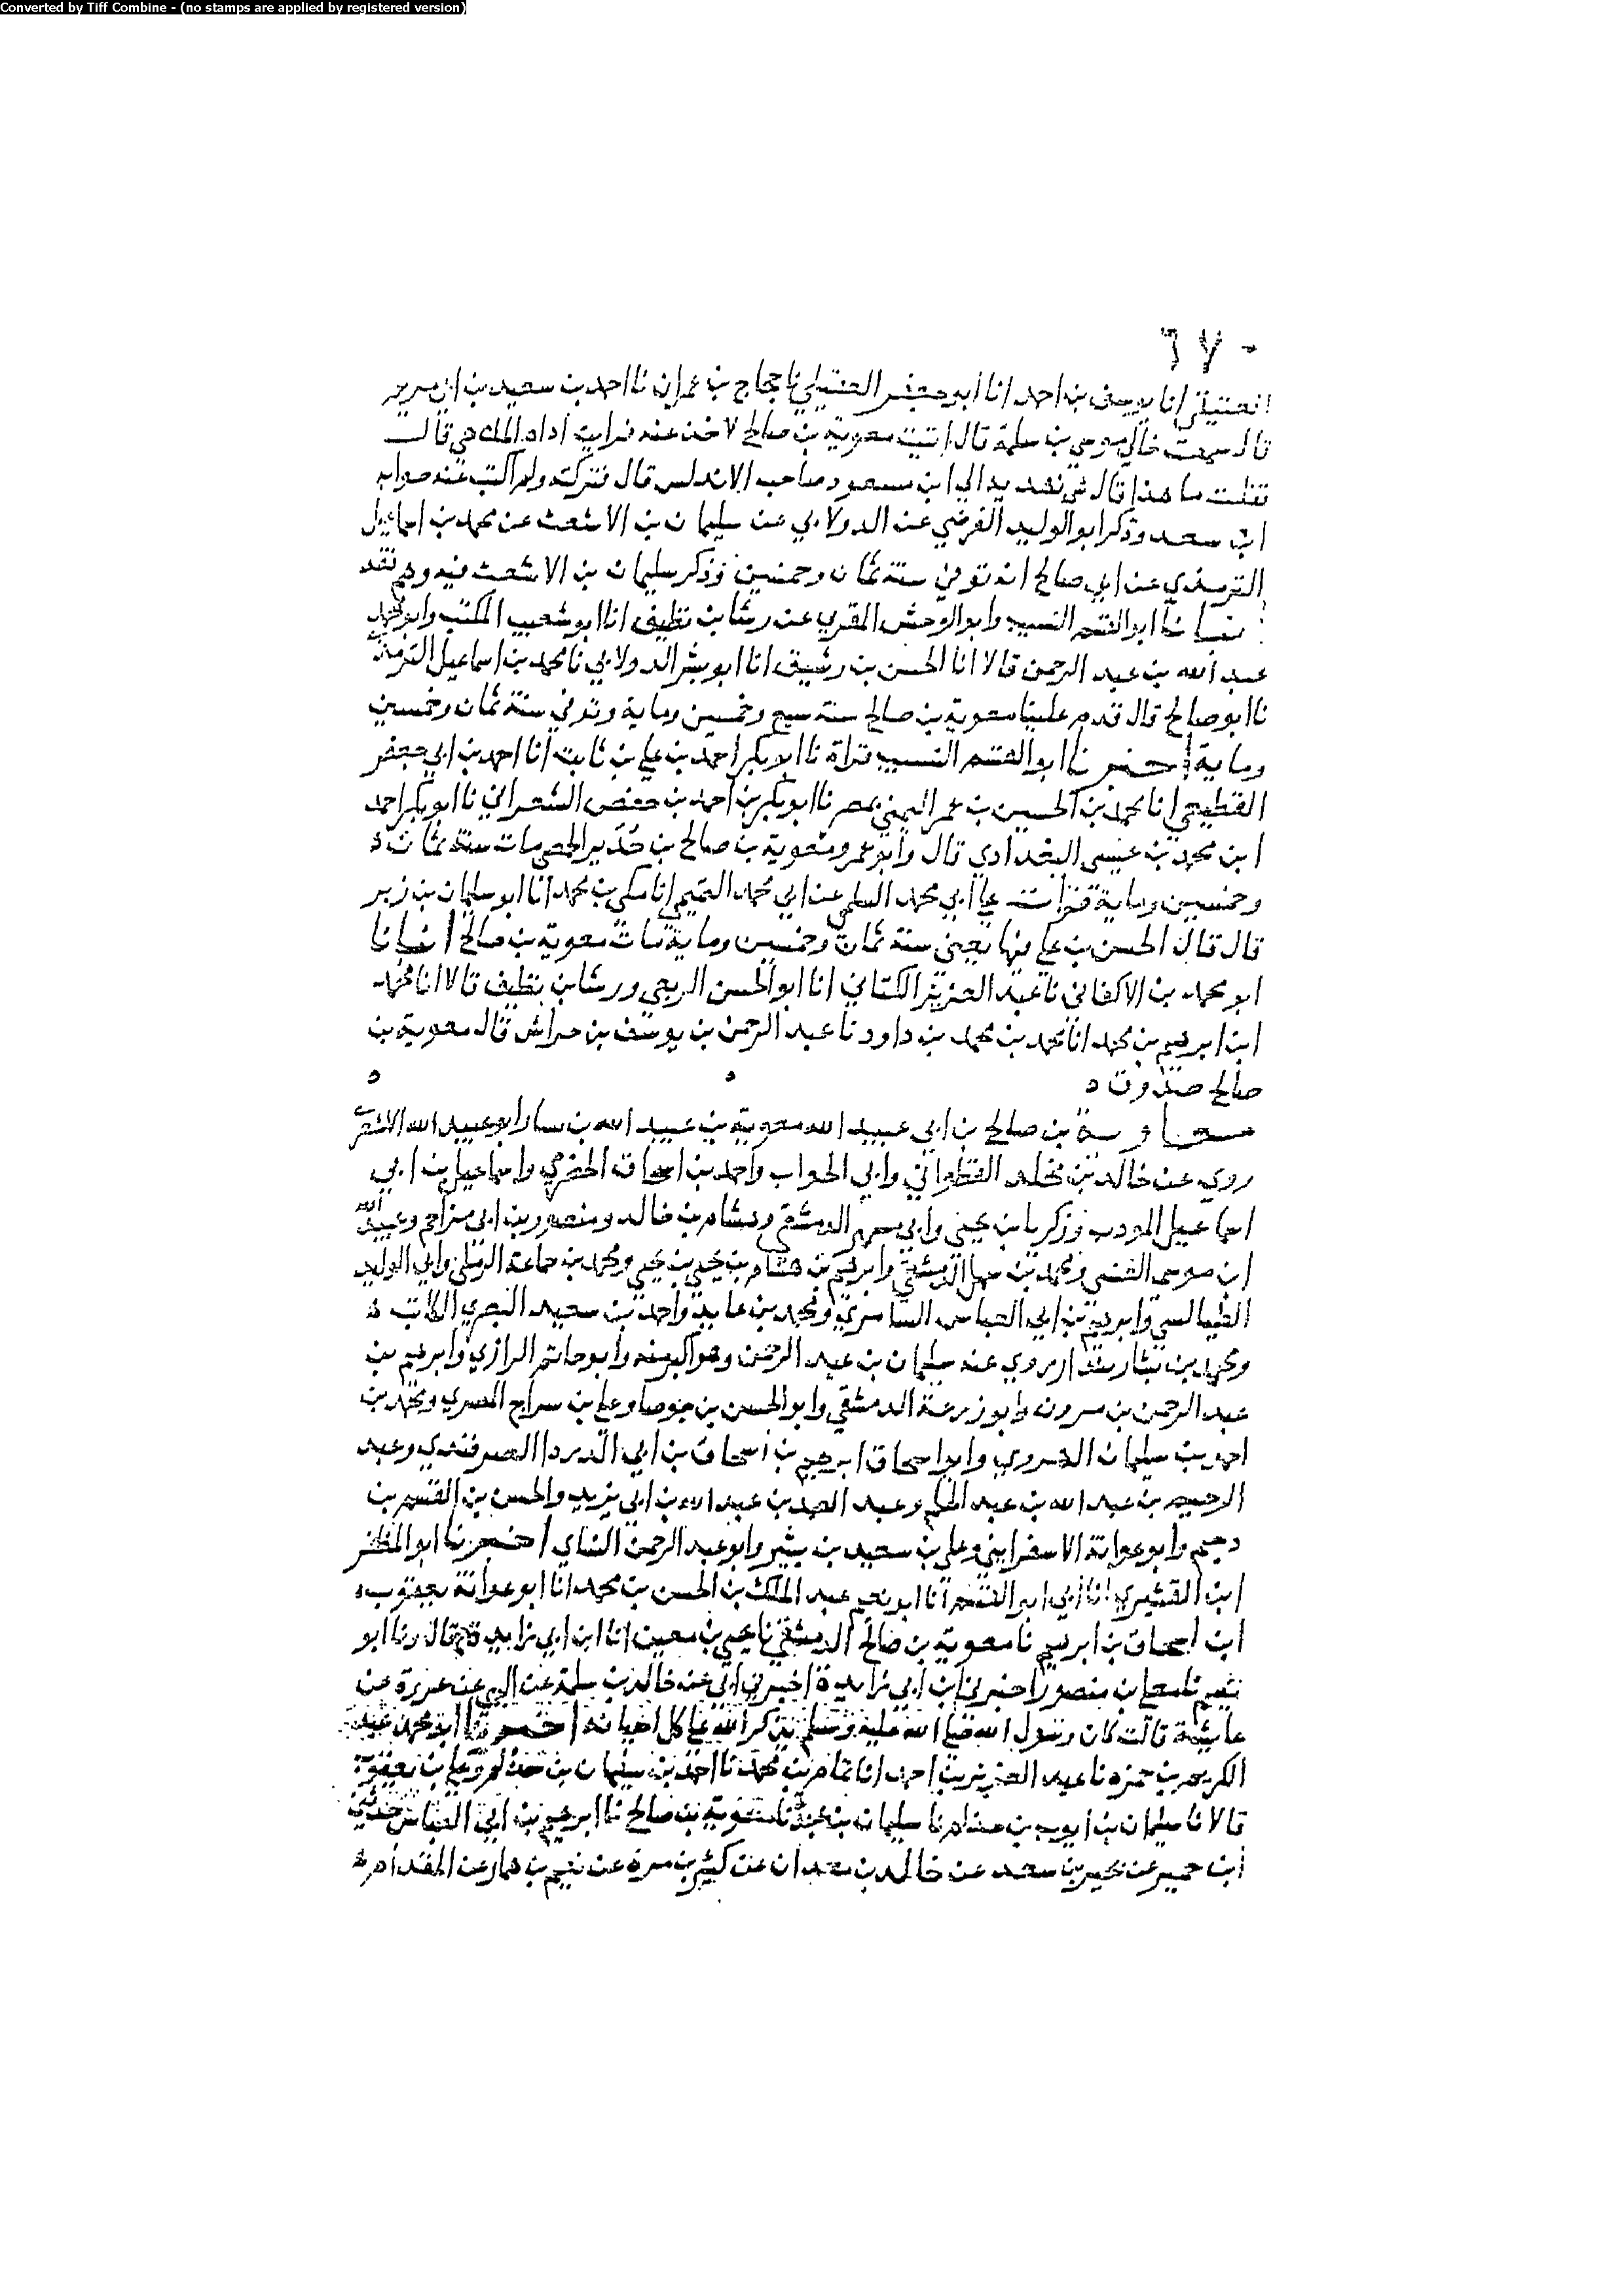 Converted by Tiff Combine - (no stamps are applied by registered version)
٦٧٠
العتيقي انا يوسف بن احمد انا أبو جعفر العقيلي نا حجاج بن عمران نا احمد بن سعيد بن ابي مريم
قال سمعت خالي موسى بن سلمة قال اتيت معوية بن صالح لاخذ عنه فرايت اداه الملاهي قال
فقلت ما هذا قال شي نهديه الي ابن مسعود صاحب الاندلس قال فتركته ولم اكتب عنه صوابه
ابن سعد وذكر ابو الوليد الفرضي عن الدولابي عن سليمان بن الاشعث عن محمد بن اسماعيل
الترمذي عن ابي صالح انه توفي سنة ثمان وخمسين وذكر سليمان بن الاشعث فيه وهم فقد
ابو القسم النسيب وابو الوحش المقري عن رشا بن نظيف انا ابو شعيب المكتب وابو محمد
عبد الله بن عبد الرحمن قالا انا الحسن بن رشيق انا ابو بشر الدولابي نا محمد بن اسماعيل الترمذي
نا ابو صالح قال قدم علينا معوية بن صالح سنة سبع وخمسين وماية وتوفي سنة ثمان وخمسين
وماية اخبرنا ابو القسم النسيب قراة نا ابو بكر احمد بن علي بن ثابت أنا احمد بن ابي جعفر
القطيعي انا محمد بن الحسين بن عمر اليمني بمصر نا ابو بكر بن احمد بن حفص الشعراني نا ابو بكر احمد
ابن محمد بن عيسى البغدادي قال وأبو عمرو معوية بن صالح بن حُدَير الحمصي مات سنة ثمان
وخمسين وماية قرات علي أبي محمد السلمي عن ابي محمد التميمي انا مكي بن محمد انا ابو سليمان بن زبر
قال قال الحسن بن علي فيها يعني سنة ثمان وخمسين وماية مات معوية بن صالح انبانا
ابو محمد بن الاكفاني نا عبد العزيز الكتاني انا ابو الحسن الربعي ورشا بن نظيف قالا انا محمد
ابن ابرهيم بن محمد انا محمد بن محمد بن داود نا عبد الرحمن بن يوسف بن خراش قال معوية بن
صالح صدوق
معاوية بن صالح بن ابي عبيد الله معوية بن عبيد الله بن يسار ابو عبيد الله الاشعري
روي عن خالد بن مخلد القطواني وابي الجواب واحمد بن اسحاق الحضرمي واسماعيل بن ابي
اسماعيل المودب وزكريا بن يحيى وابي مسهر الدمشقي وهشام بن خالد ومنصور بن ابي مزاحم وعبيد الله
ابن موسى العبسي ومحمد بن سهل الدمشقي وابرهيم بن هشام بن يحيي بن يحيي ومحمد بن سماعة الرملي وابي الوليد
الطيالسي وابرهيم بن ابي العباس السامري ومحمد بن عايذ واحمد بن سعيد البصري الكاتب
ومحمد بن بشار بندار روي عنه سليمان بن عبد الرحمن وهو اكبر منه وابو حاتم الرازي وابرهيم بن
عبد الرحمن بن مروان وابو زرعة الدمشقي وابو الحسن بن جوصا وعلي بن سراج المصري ومحمد بن
احمد بن سليمان الهروي وابو اسحاق ابرهيم بن اسحاق بن ابي الدردا الصرفندي وعبد
الرحيم بن عبد الله بن عبد الحكم وعبد الصمد بن عبد الله بن ابي يزيد والحسن بن القسم بن
دحيم وابو عوانة الاسفرايني وعلي بن سعيد بن بشير وابو عبد الرحمن النساي اخبرنا ابو المظفر
ابن القشيري انا أبي ابو القسم أنا ابو نعيم عبد الملك بن الحسن بن محمد انا ابو عوانة يعقوب
ابن اسحاق بن ابرهيم نا معوية بن صالح الدمشقي نا يحيي بن معين انا ابن ابي زايدة ح قال ونا ابو
نا معلي بن منصور اخبرني ابن ابي زايدة اخبرني ابي عن خالد بن سلمة عن البهي عن عروة عن
عايشة قالت كان رسول الله صلى الله عليه وسلم يذكر الله علي كل احيانه اخبرنا ابو محمد عبد
الكريم بن حمزه نا عبد العزيز بن احمد انا تمام بن محمد نا احمد بن سليمان بن حذلم وعلي بن يعقوب
قالا نا سليمان بن أيوب بن حذلم نا سليمان بن نا معوية بن صالح نا ابرهيم بن ابي العباس حدثني
ابن حمير عن بحير بن سعد عن خالد بن معدان عن كثير بن مرة عن نعيم بن همار عن المقدام